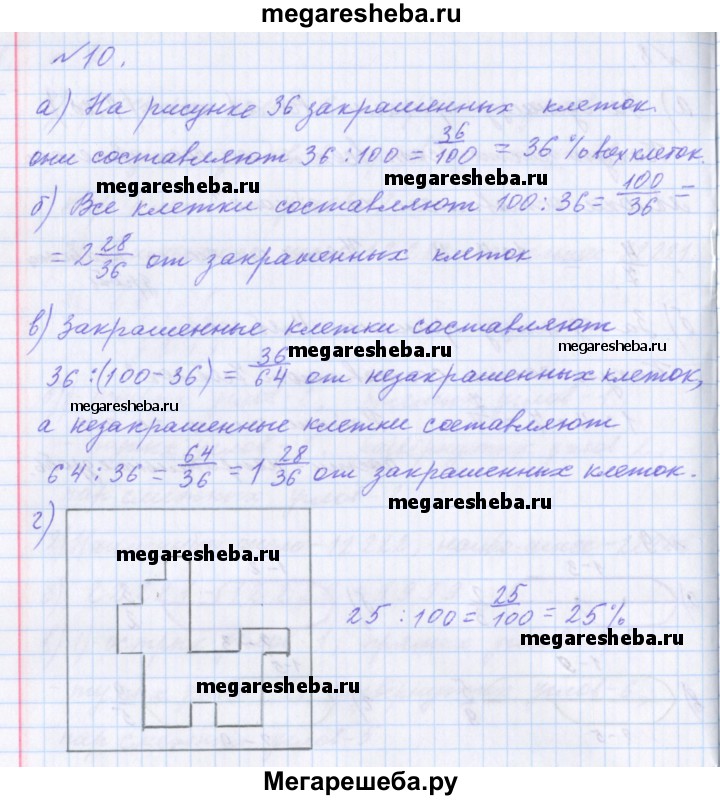 megaresheba.ru
№10.
а) На рисунке 36 закрашенных клеток.
они составляют 36 : 100 = 36/100 = 36 % всех клеток.
megaresheba.ru
megaresheba.ru
б) Все клетки составляют 100 : 36 = 100/36 =
= 2 28/36 от закрашенных клеток
в) Закрашенные клетки составляют
megaresheba.ru
megaresheba.ru
36 : (100 - 36) = 36/64 от незакрашенных клеток,
megaresheba.ru
а незакрашенные клетки составляют
64 : 36 = 64/36 = 1 28/36 от закрашенных клеток.
megaresheba.ru
г)
megaresheba.ru
25 : 100 = 25/100 = 25%
megaresheba.ru
megaresheba.ru
Мегарешеба.ру